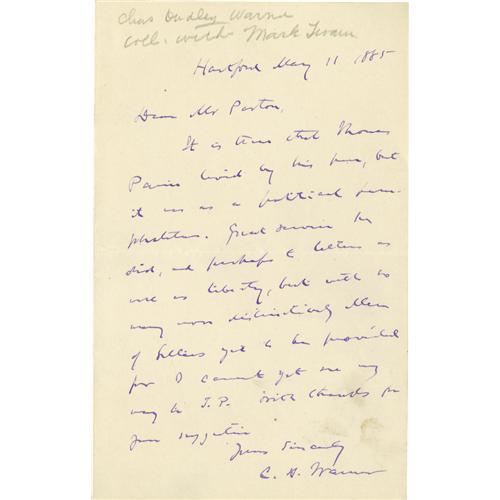 Chas Dudley Warne
Coll. with Mark Twain
Hartford May 11 1885
Dear Mr Parton,
It is true that Thomas
Paine lived by his pen, but
it was as a political pam-
phleteer. Great service he
did, and perhaps to letters as
well as liberty, but with so
many more distinctively Men
of Letters yet to be provided
for I cannot yet see my
way to T.P. With thanks for
your suggestion
Yours Sincerely
C. D. Warner